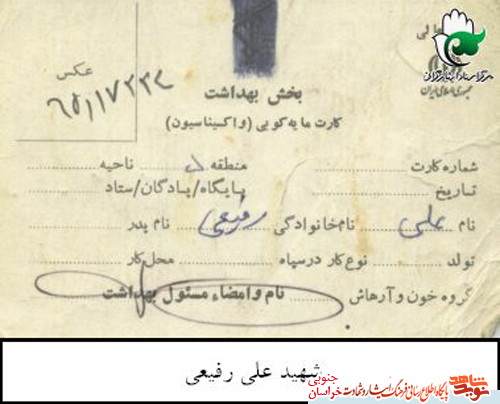 عالی
جمهوری اسلامی ایران
مرکز اسناد ایثارگران
عکس
بخش بهداشت
کارت مایه‌کوبی (واکسیناسیون)
شماره کارت منطقه ناحیه
تاریخ پایگاه/پادگان/ستاد
نام علی نام خانوادگی رفیعی نام پدر
تولد نوع کار در سپاه محل کار
گروه خون و آرهاش نام و امضاء مسئول بهداشت
شهید علی رفیعی
نوید شاهد
پایگاه اطلاع رسانی فرهنگ ایثار و شهادت خراسان جنوبی